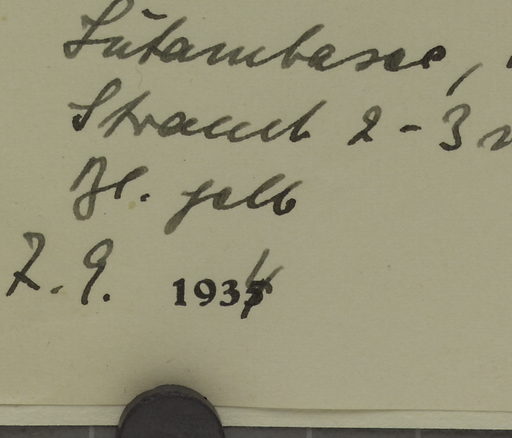 Lütambasee,
Strauch 2-3
Bl. gelb
7. 9. 1934